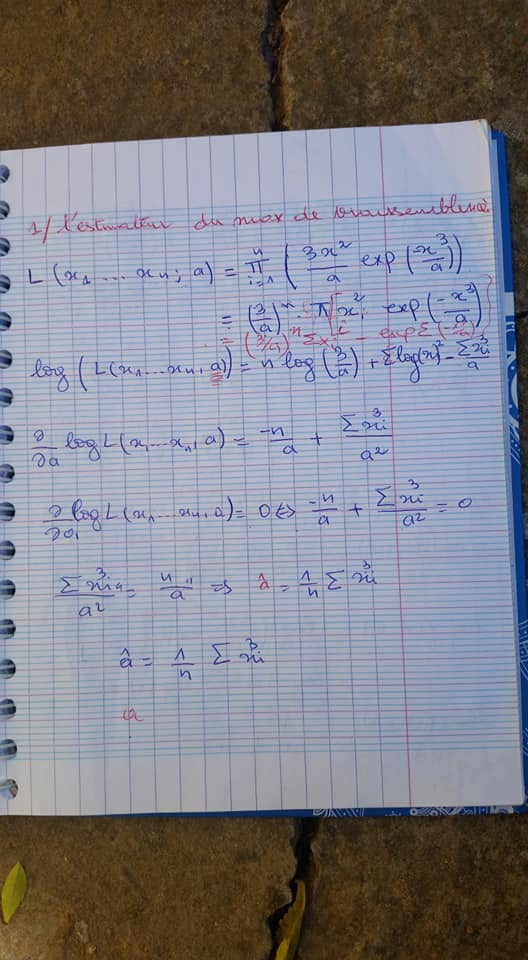 1/ L'estimateur du max de vraissemblence
L (x₁ ... xₙ ; a) = π_{i=1}^{n} ( 3x²/a exp (-x³/a) )
= (3/a)ⁿ π x_i² exp (-x³/a)
= (3/a)ⁿ Σx_i - exp Σ(-x³/a)
log ( L(x₁ ... xₙ, a) ) = n log (3/a) + Σlog(x)² - Σx_i³/a
∂/∂a log L (x₁ ... xₙ, a) = -n/a + Σ x_i³/a²
∂/∂a log L (x₁ ... xₙ, a) = 0 ⇔ -n/a + Σ x_i³/a² = 0
Σ x_i³/a² = n/a ⇒ â = 1/n Σ x_i³
â = 1/n Σ x_i³
a